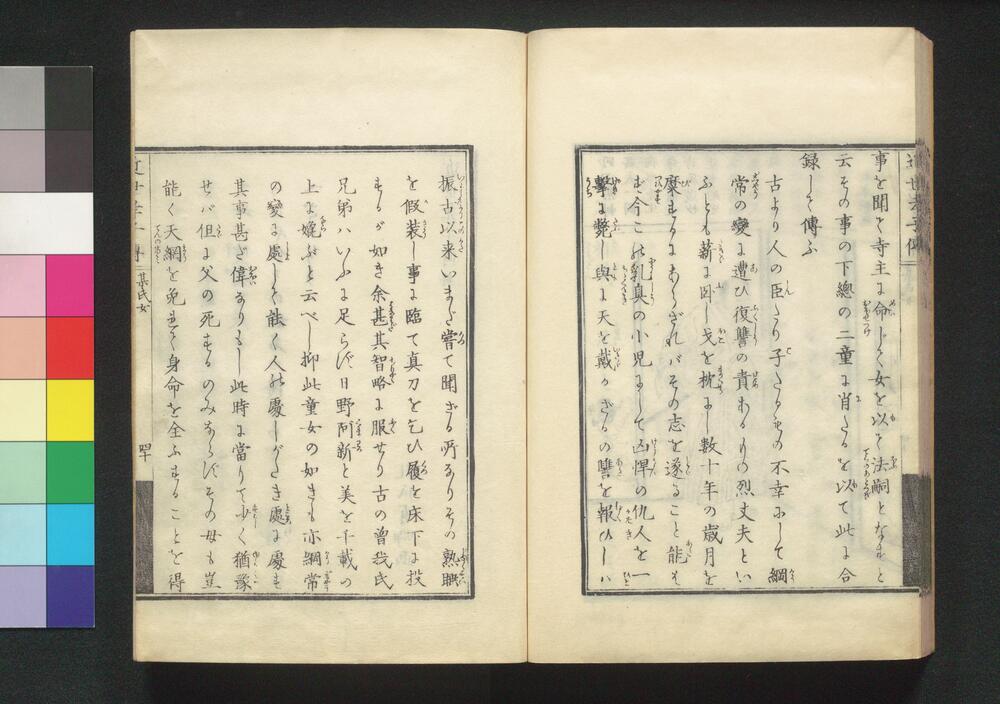 事を聞て寺主に命じその女を以て法嗣となすと
云その事の下總の二童に肖たるを以て此に合
録して傳ふ
古より人の臣たり子たるもの不幸にして綱
常の變に遭ひ復讐の責あるもの烈丈夫とい
ふとも薪に卧し戈を枕にし数十年の歳月を
糜するにあらざればその志を遂ること能は
ず今この乳臭の小児にして凶悍の仇人を一
撃に斃し與に天を戴かざるの讐を報ひしハ
振古以来いまだ嘗て聞ざる所なりその熟眠
を假装し事に臨て真刀を乞ひ履を床下に投
するが如き余甚其智略に服せり古の曽我氏
兄弟ハいふに足らず日野阿新と美を千載の
上に媲ぶと云べし抑此童女の如きも亦綱常
の變に處して能く人の處しがたき處に處す
其事甚だ偉なりもし此時に當りて少く猶豫
せバ但に父の死するのみならずその母も豈
能く天網を免れて身命を全ふすることを得
近世孝子傳
某氏女
四十
近世孝子傳